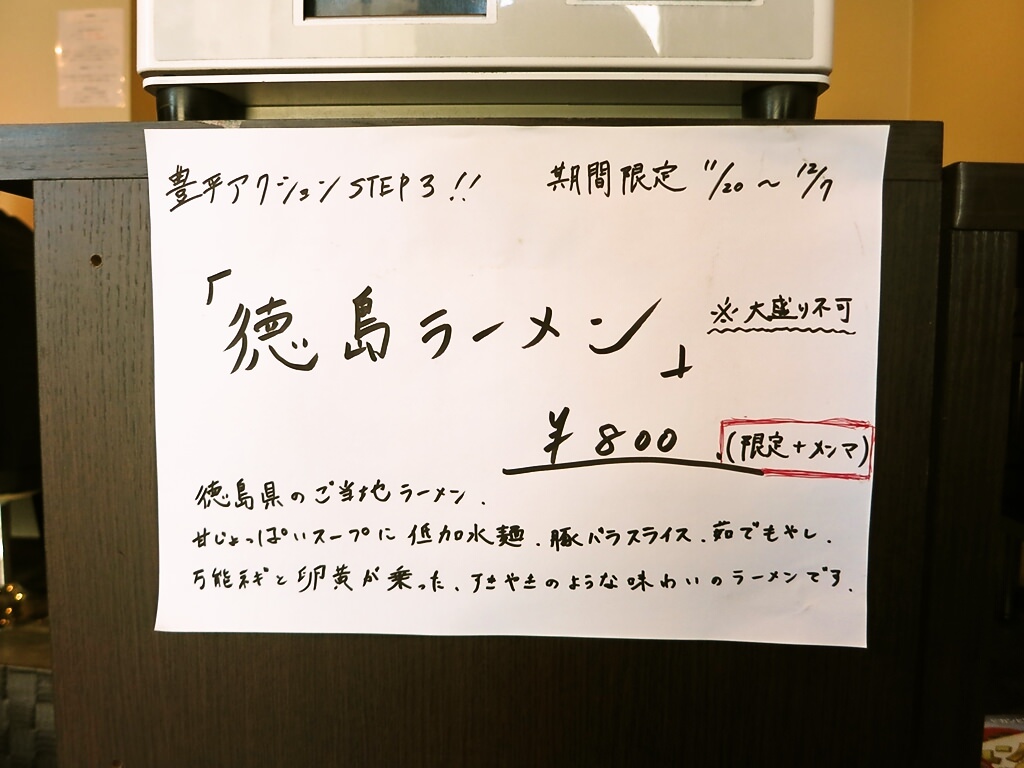 豊平アクションSTEP3!! 期間限定 11/20～12/7
「徳島ラーメン」
※大盛り不可
¥800
(限定+メンマ)
徳島県のご当地ラーメン.
甘じょっぱいスープに低加水麺.豚バラスライス.茹でもやし.
万能ネギと卵黄が乗った、すきやきのような味わいのラーメンです.